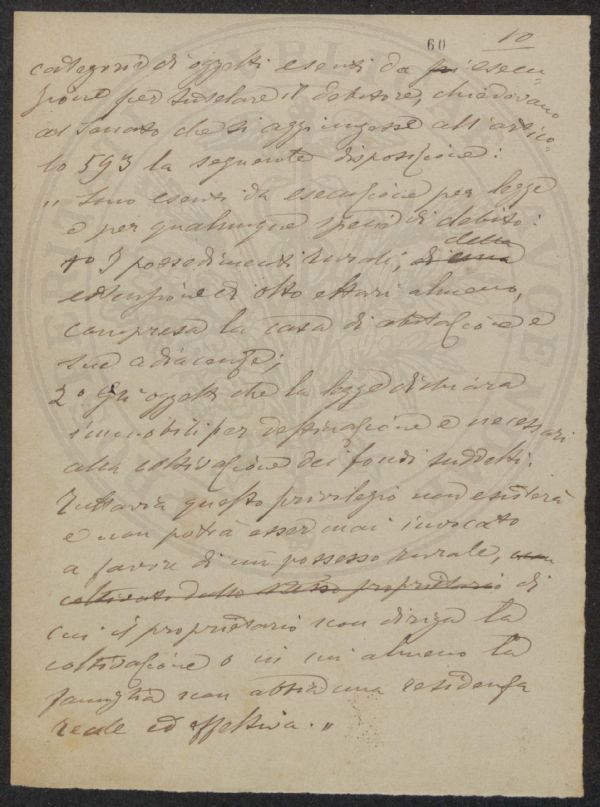 60
10
categorie di oggetti esenti da pri esecu-
zione per tutelare il debitore, chiedevano
al Senato che si aggiungesse all'artico-
lo 593 la seguente disposizione:
"Sono esenti da esecuzione per legge
e per qualunque specie di debito:
1o I possedimenti rurali, di una della
estensione di otto ettari almeno,
compresa la casa di abitazione e
sue adiacenze;
2o Gli oggetti che la legge dichiara
immobili per destinazione e necessari
alla coltivazione dei fondi suddetti.
Tuttavia questo privilegio non esisterà
e non potrà esser mai invocato
a favore di un possesso rurale, non
coltivato dallo stesso proprietario di
cui il proprietario non diriga la
coltivazione o in cui almeno la
famiglia non abbia una residenza
reale ed effettiva."